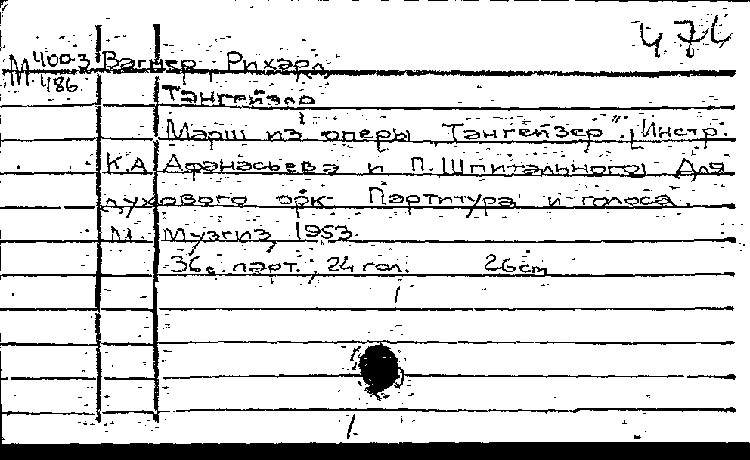 471
М 400-3 Вагнер, Рихард
486
Тангейзер
Марш из оперы „Тангейзер". [Инстр.
К.А. Афанасьева и П. Шпитального] Для
духового орк. Партитура и голоса.
М. Музгиз, 1953.
36 с. парт.; 24 гол. 26 cm